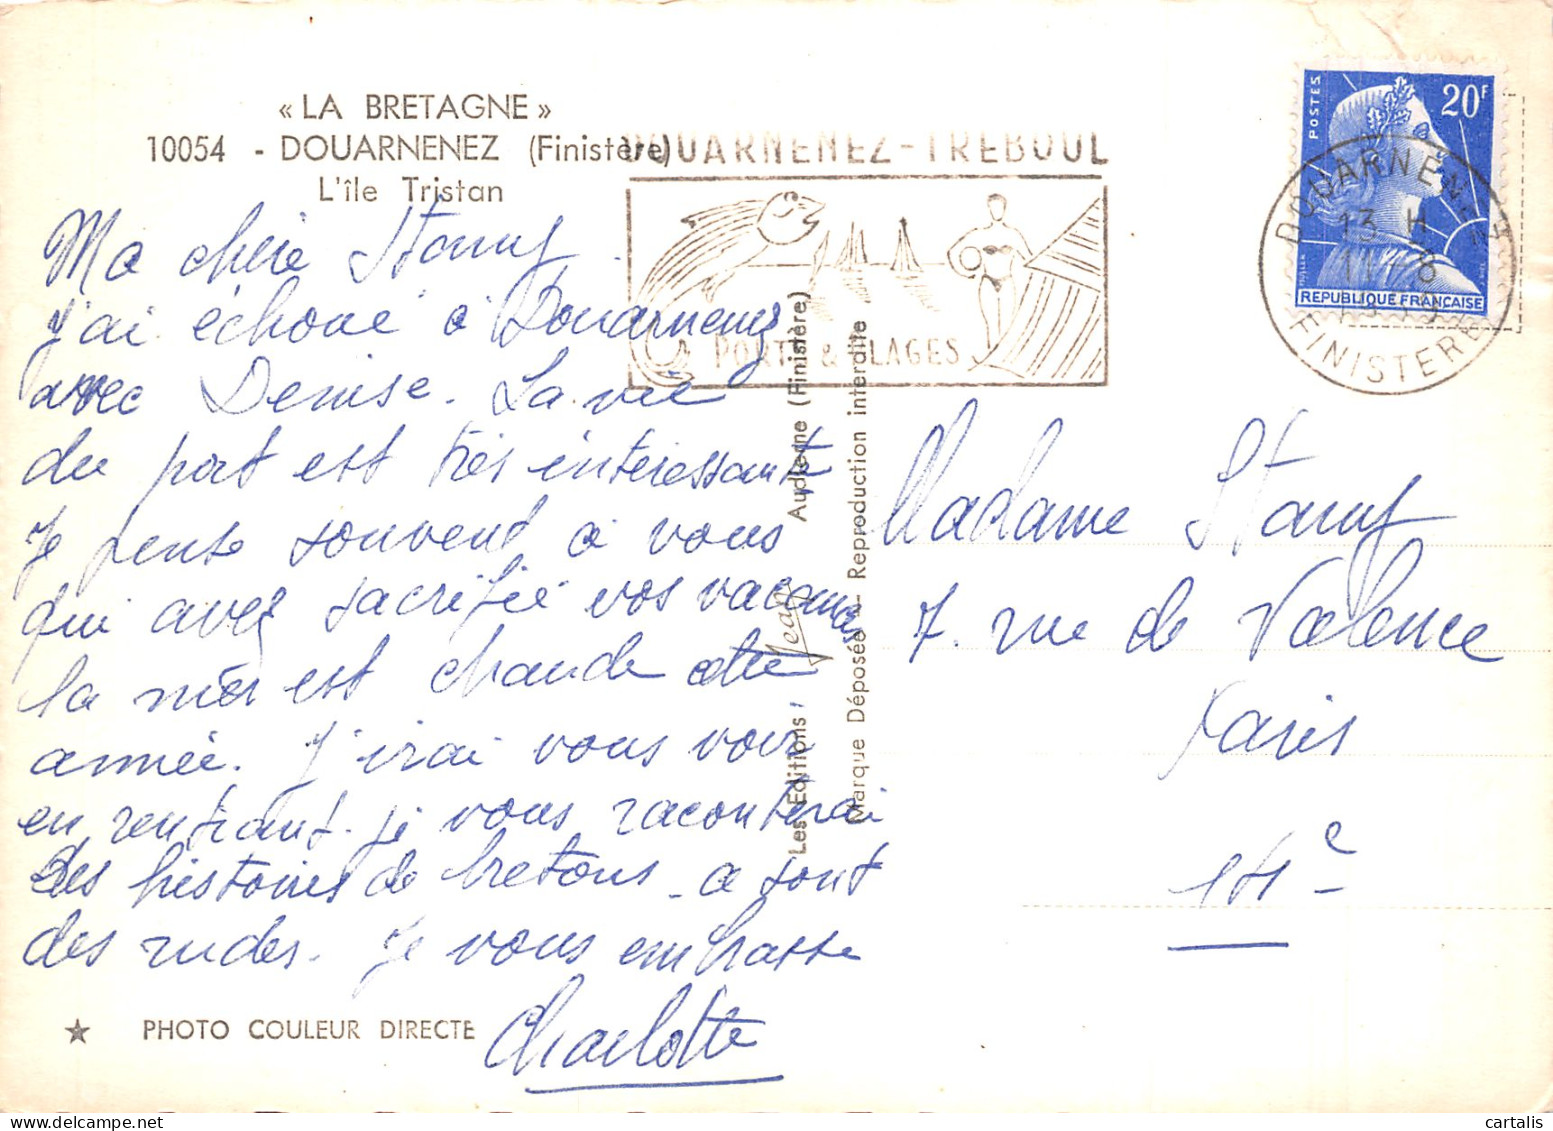 « LA BRETAGNE »
10054 - DOUARNENEZ (Finistère)
L'île Tristan
DOUARNENEZ-TREBOUL
PORTS & PLAGES
POSTES
20F
REPUBLIQUE FRANÇAISE
DOUARNENEZ
13 H
11 - 8
FINISTERE
Ma chère Stamf
j'ai échoué à Douarnenez
avec Denise. La vie
du port est très intéressante
Je pense souvent à vous
qui avez sacrifié vos vacances
la mer est chaude cette
année. J'irai vous voir
en rentrant. je vous raconterai
des histoires de bretons - ce sont
des rudes. Je vous embrasse
Charlotte
PHOTO COULEUR DIRECTE
Les Editions Jean Audierne (Finistère)
Marque Déposée - Reproduction interdite
Madame Stamf
7. rue de Valence
Paris